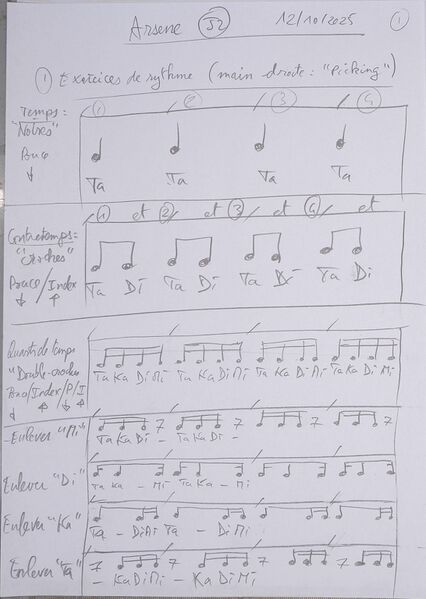 Arsene 52 12/10/2025 1
1 Exercices de rythme (main droite: "Picking")
Temps: 1 / 2 / 3 / 4
"Noires"
Pouce
↓ Ta Ta Ta Ta
1 et 2 / et 3 / et 4 / et
Contretemps:
"Croches"
Pouce/Index Ta Di Ta Di Ta Di Ta Di
↓ ↑
Quarts de temps
"Double-croches
/Index/P/I Ta Ka Di Mi Ta Ka Di Mi Ta Ka Di Mi Ta Ka Di Mi
↓ ↑ ↓ ↑
- Enlever "Mi" Ta Ka Di - Ta Ka Di -
Enlever "Di" Ta Ka - Mi Ta Ka - Mi
Enlever "Ka" Ta - Di Mi Ta - Di Mi
Enlever "Ta" - Ka Di Mi - Ka Di Mi